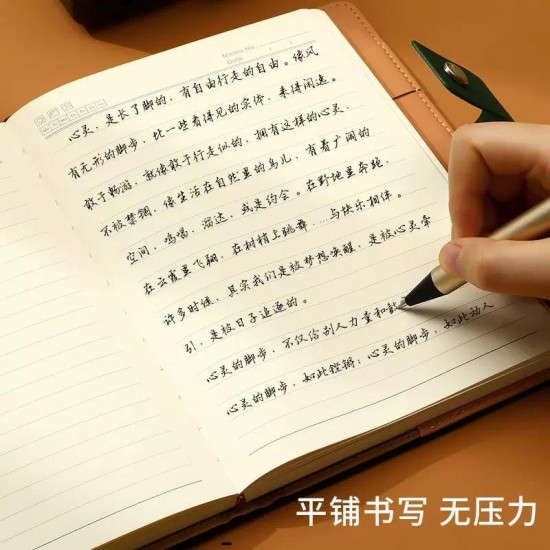 Memo No.
Date / /
心灵，是长了脚的，有自由行走的自由。像风
有无形的脚步，比一些看得见的实体，来得闲逸。
敢于畅游，就像敢于行走似的，拥有这样的心灵，
不被禁锢，像生活在自然里的鸟儿，有着广阔的
空间，鸣唱，溜达，或是约会。在野地里奔跑，
在云霞里飞翔，在树梢上跳舞……与快乐相伴。
许多时候，其实我们是被梦想唤醒，是被心灵牵
引，是被日子追逐的。
心灵的脚步，不仅给别人力量和
心灵的脚步，如此铿锵；心灵的脚步，如此动人
平铺书写 无压力